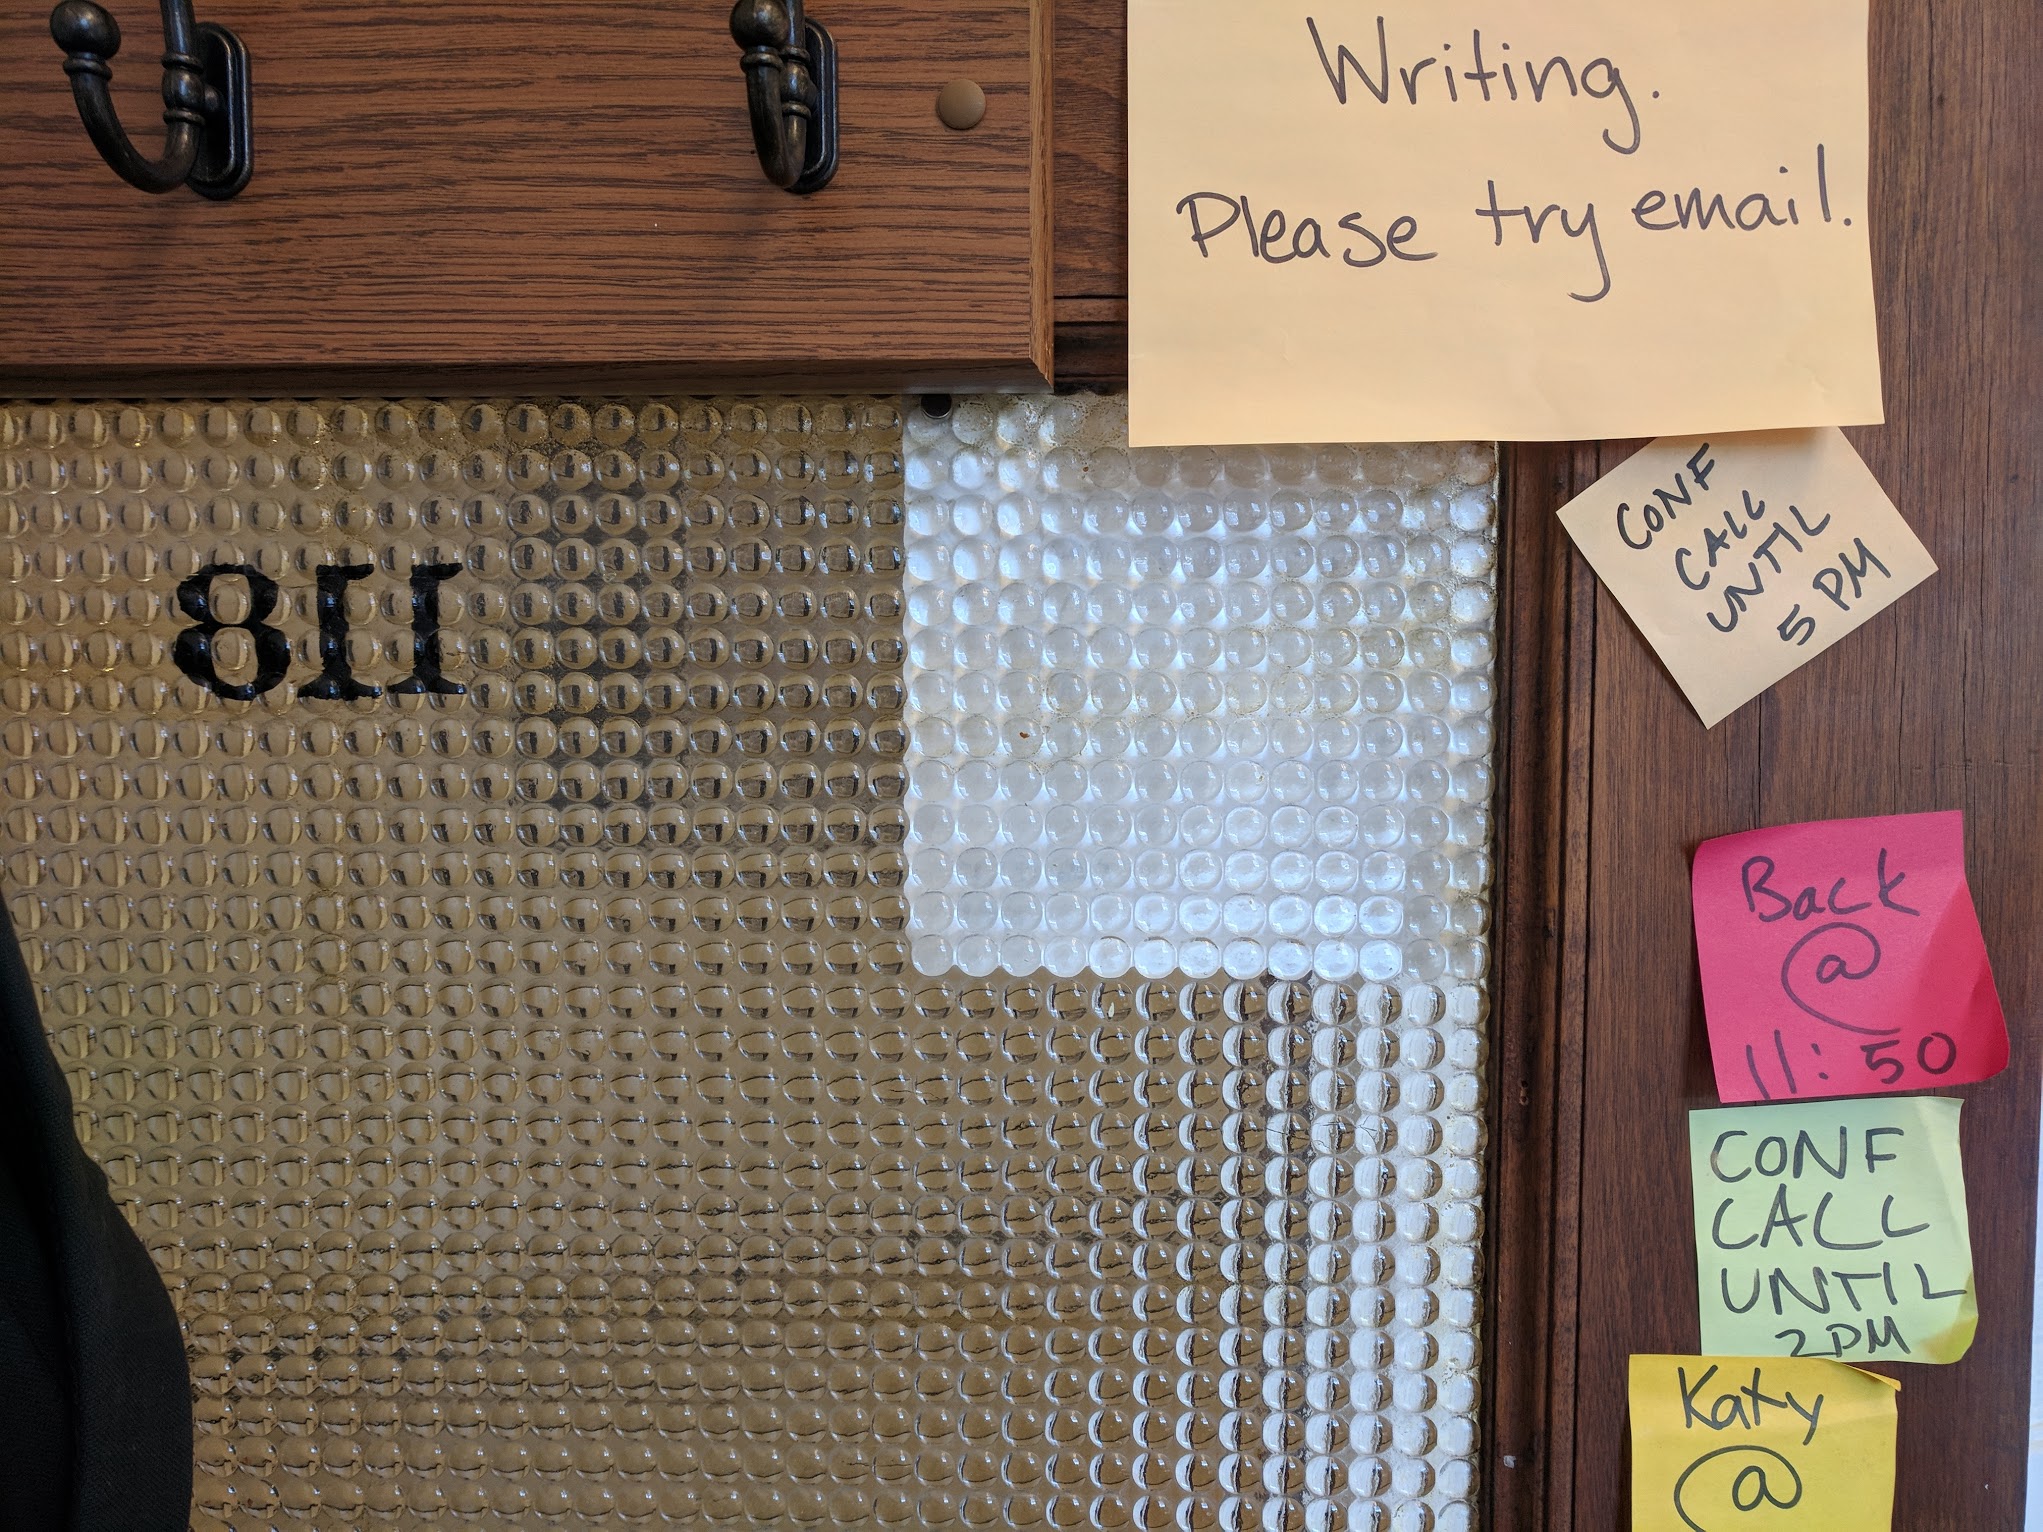 Writing.
Please try email.
CONF
CALL
UNTIL
5 PM
118
Back
@
11:50
CONF
CALL
UNTIL
2PM
Katy
@